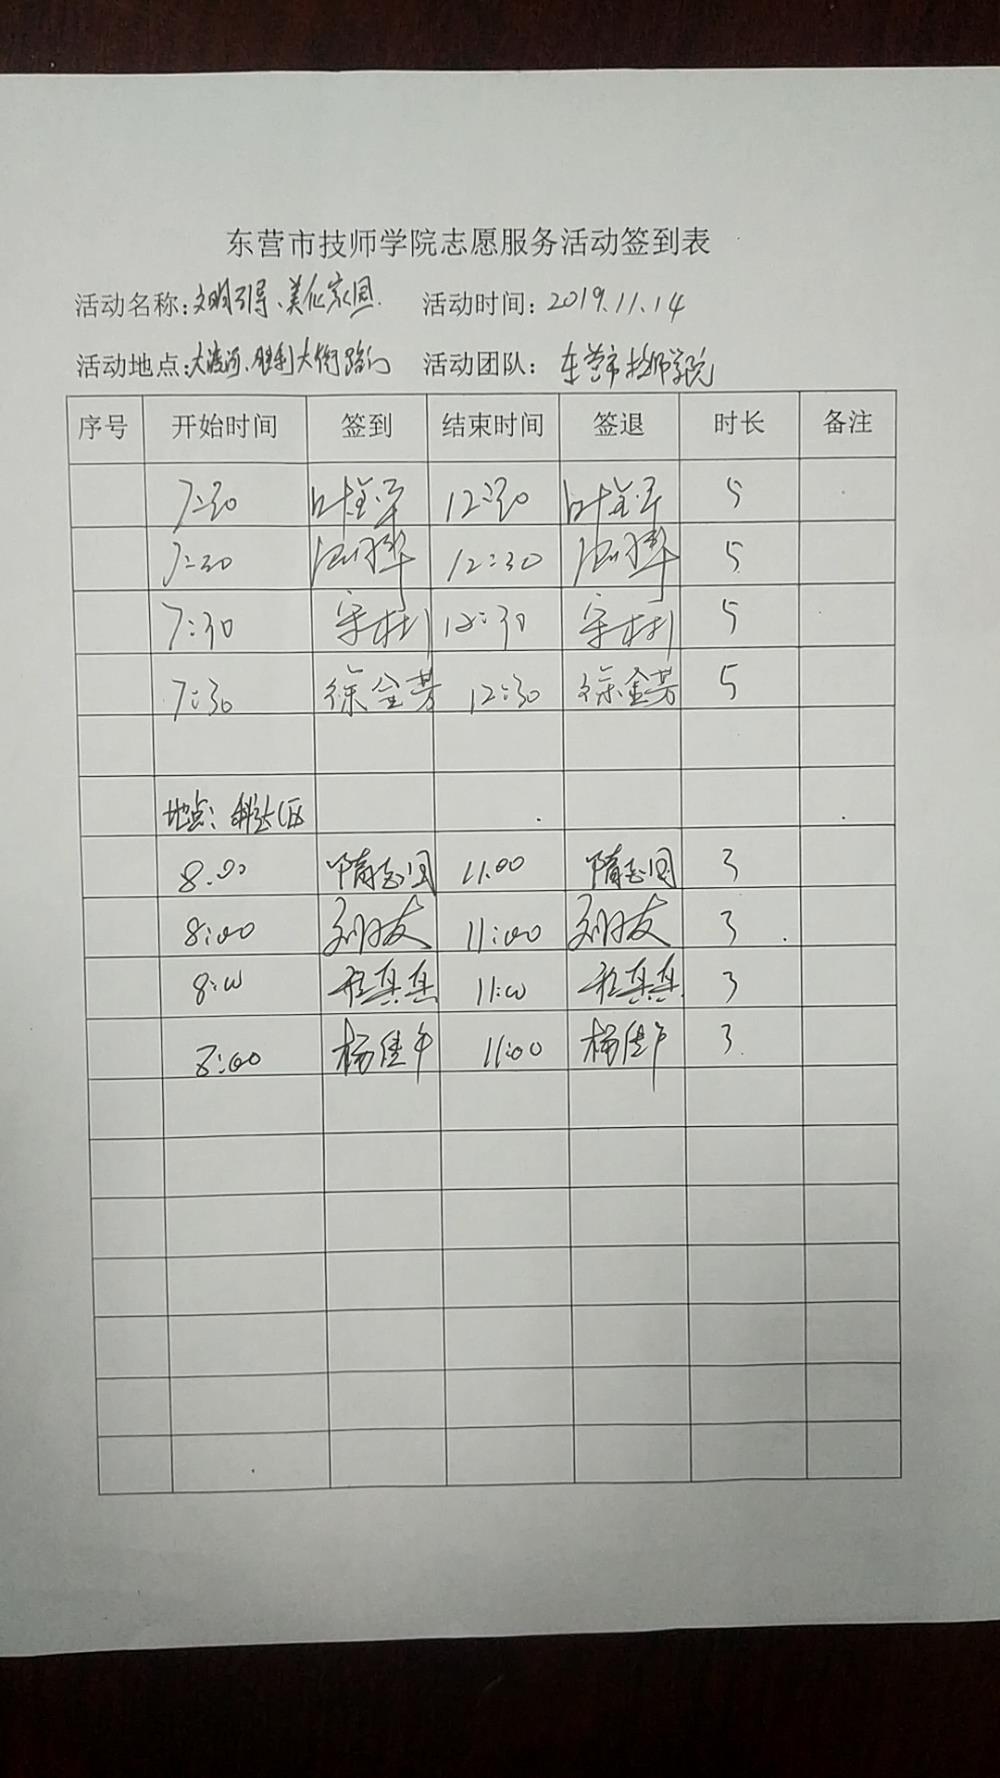 东营市技师学院志愿服务活动签到表
活动名称:文明引导、美化家园 活动时间:2019.11.14
活动地点:大渡河、胜利大街路口 活动团队:东营市技师学院
序号 开始时间 签到 结束时间 签退 时长 备注
7:30 叶金平 12:30 叶金平 5
7:30 12:30 5
7:30 12:30 5
7:30 徐金芳 12:30 徐金芳 5
地点:科达小区
8:00 隋志国 11:00 隋志国 3
8:00 11:00 3
8:00 程真真 11:00 程真真 3
8:00 杨佳午 11:00 杨佳午 3